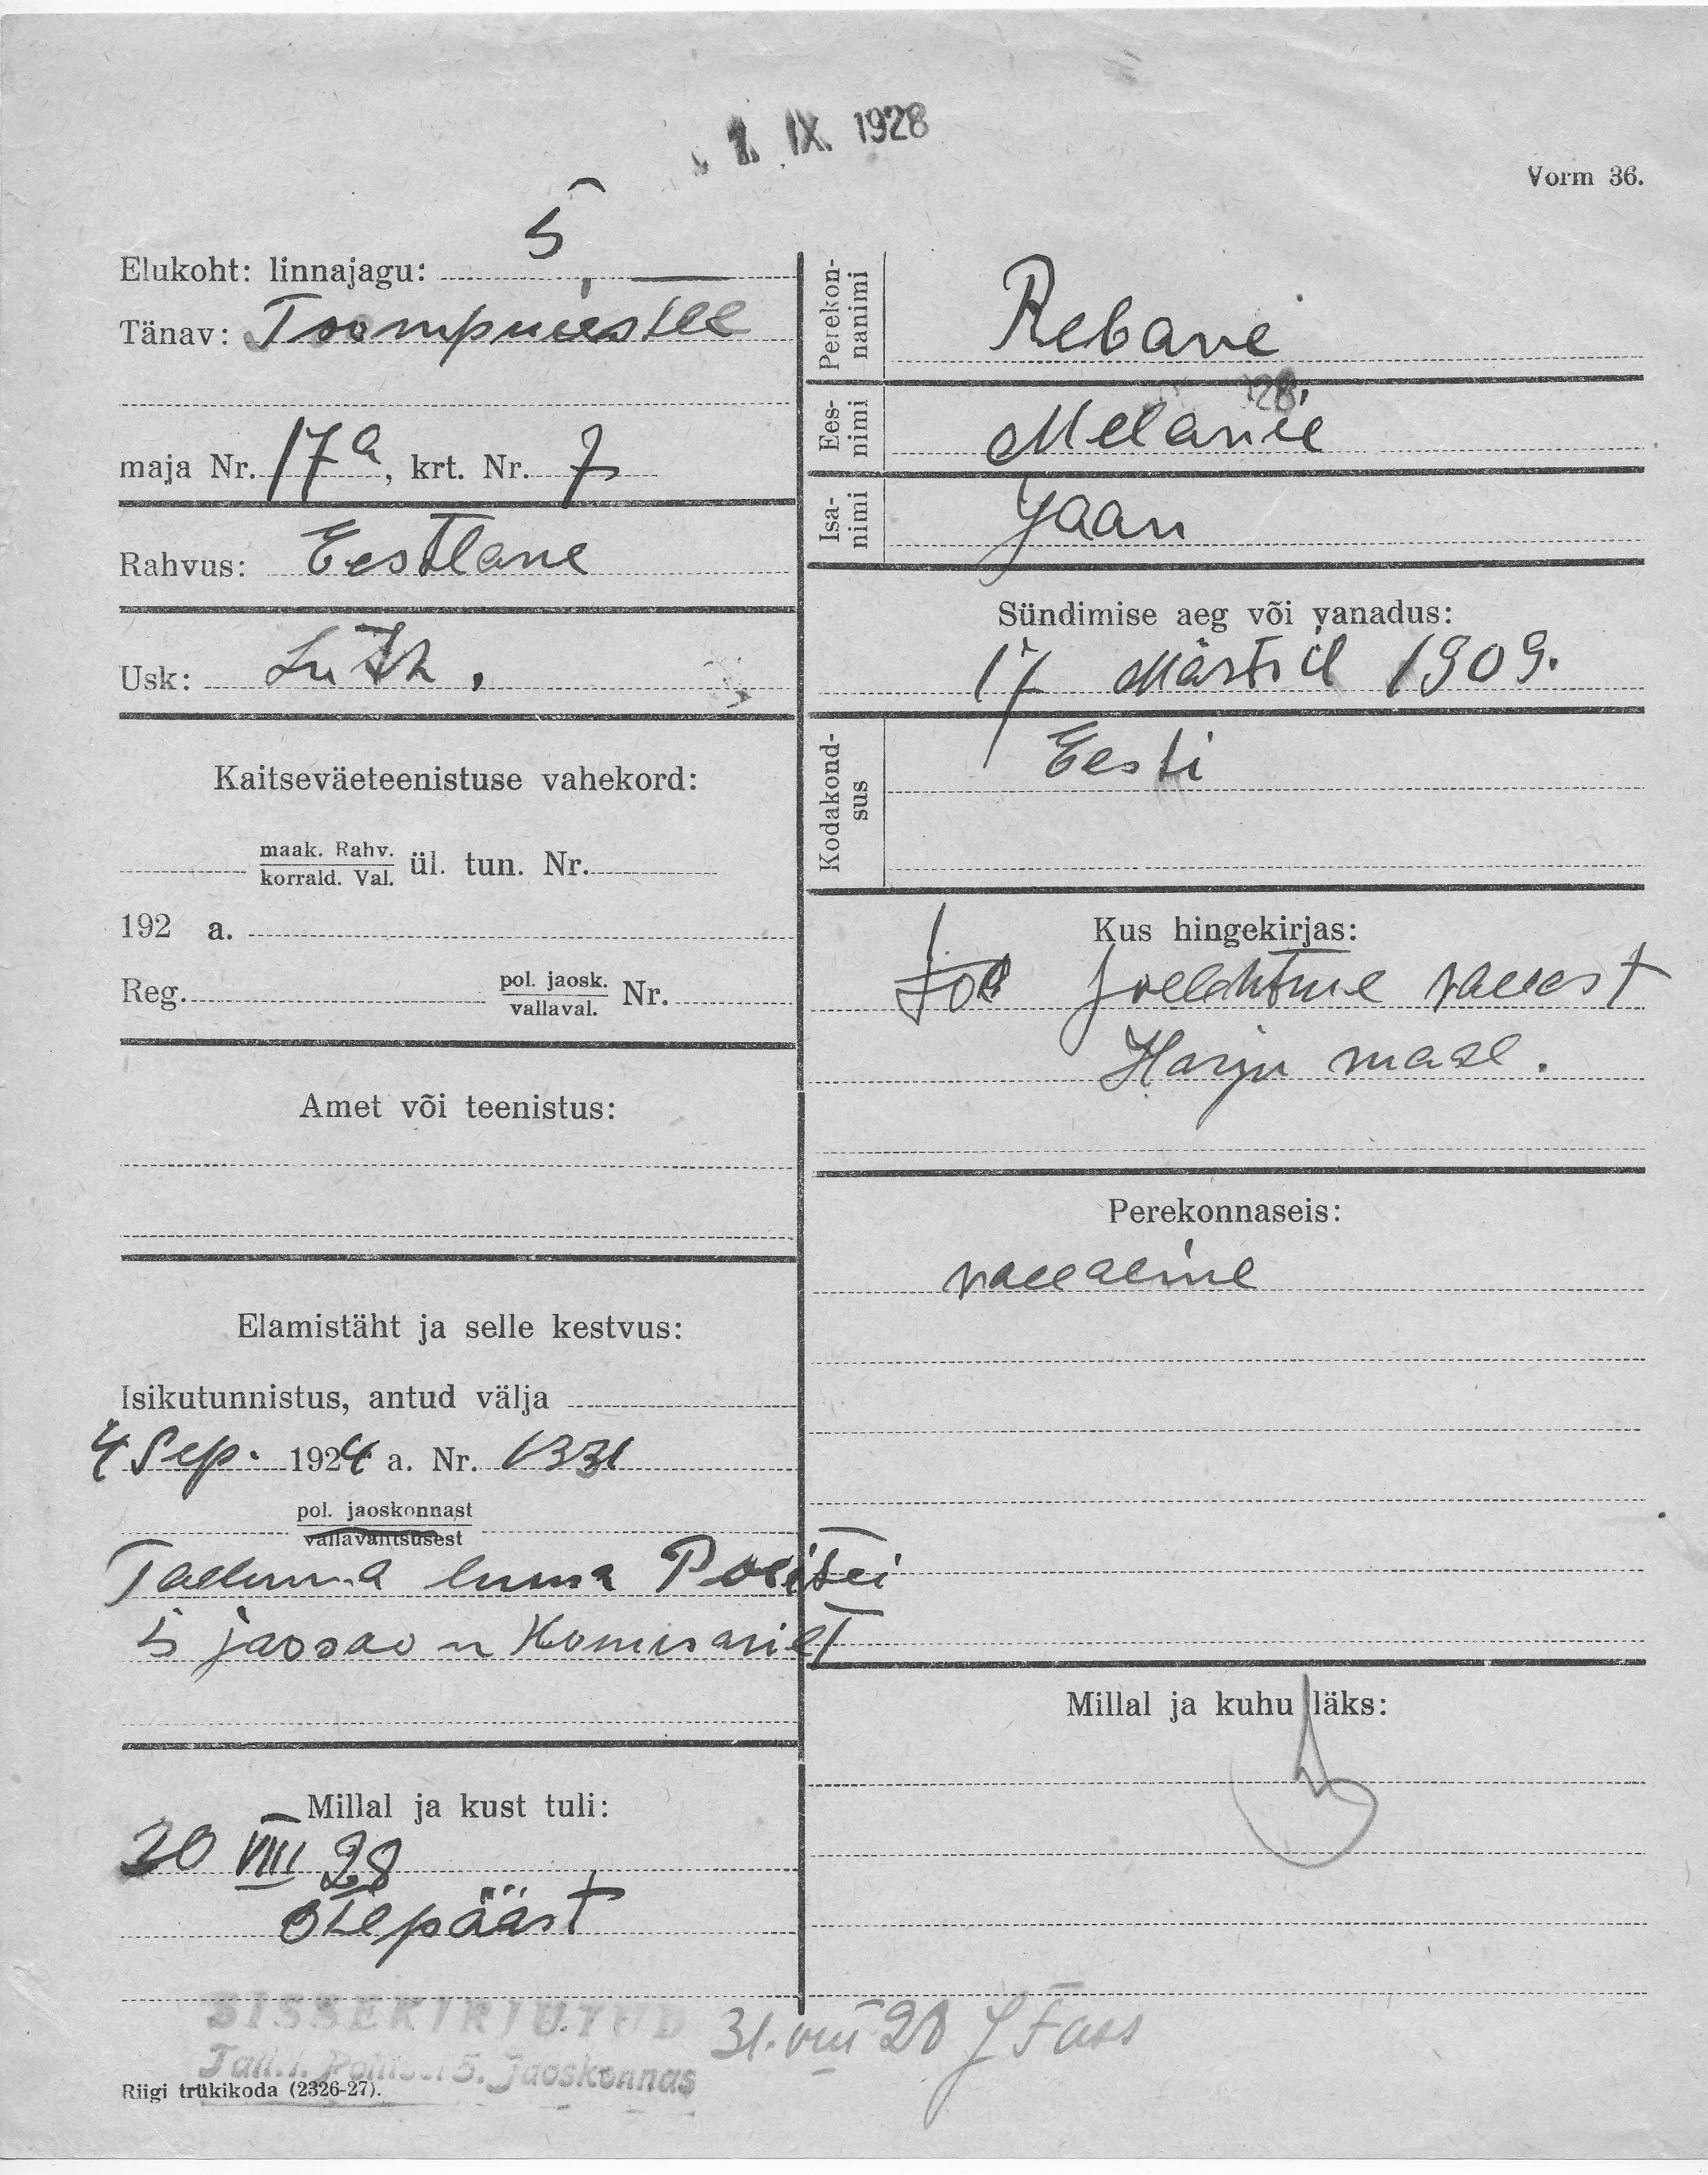 1. IX. 1928
Vorm 36.
Elukoht: linnajagu: 5,
Tänav: Toompuiestee
maja Nr. 17a, krt. Nr. 7
Rahvus: Eestlane
Usk: Luth.
Kaitseväeteenistuse vahekord:
maak. Rahv.
korrald. Val. ül. tun. Nr.
192 a.
Reg. pol. jaosk.
vallaval. Nr.
Amet või teenistus:
Elamistäht ja selle kestvus:
Isikutunnistus, antud välja
4 Sep. 1924 a. Nr. 1331
pol. jaoskonnast
vallavalitsusest
Tallinna linna Politsei
5 jaosko n Komisarilt
Millal ja kust tuli:
30 VIII 28
Otepääst
SISSEKIRJUTUD
Tall. l. Politsei 5. Jaoskonnas
Riigi trükikoda (2326-27).
Perekon-
nanimi
Rebane
Ees-
nimi
Melanie
Isa-
nimi
Jaan
Sündimise aeg või vanadus:
17 Märtsil 1909.
Kodakond-
sus
Eesti
Kus hingekirjas:
Joelähtme vallast
Harju maal.
Perekonnaseis:
vallaline
Millal ja kuhu läks:
31. VIII 28 J Fass